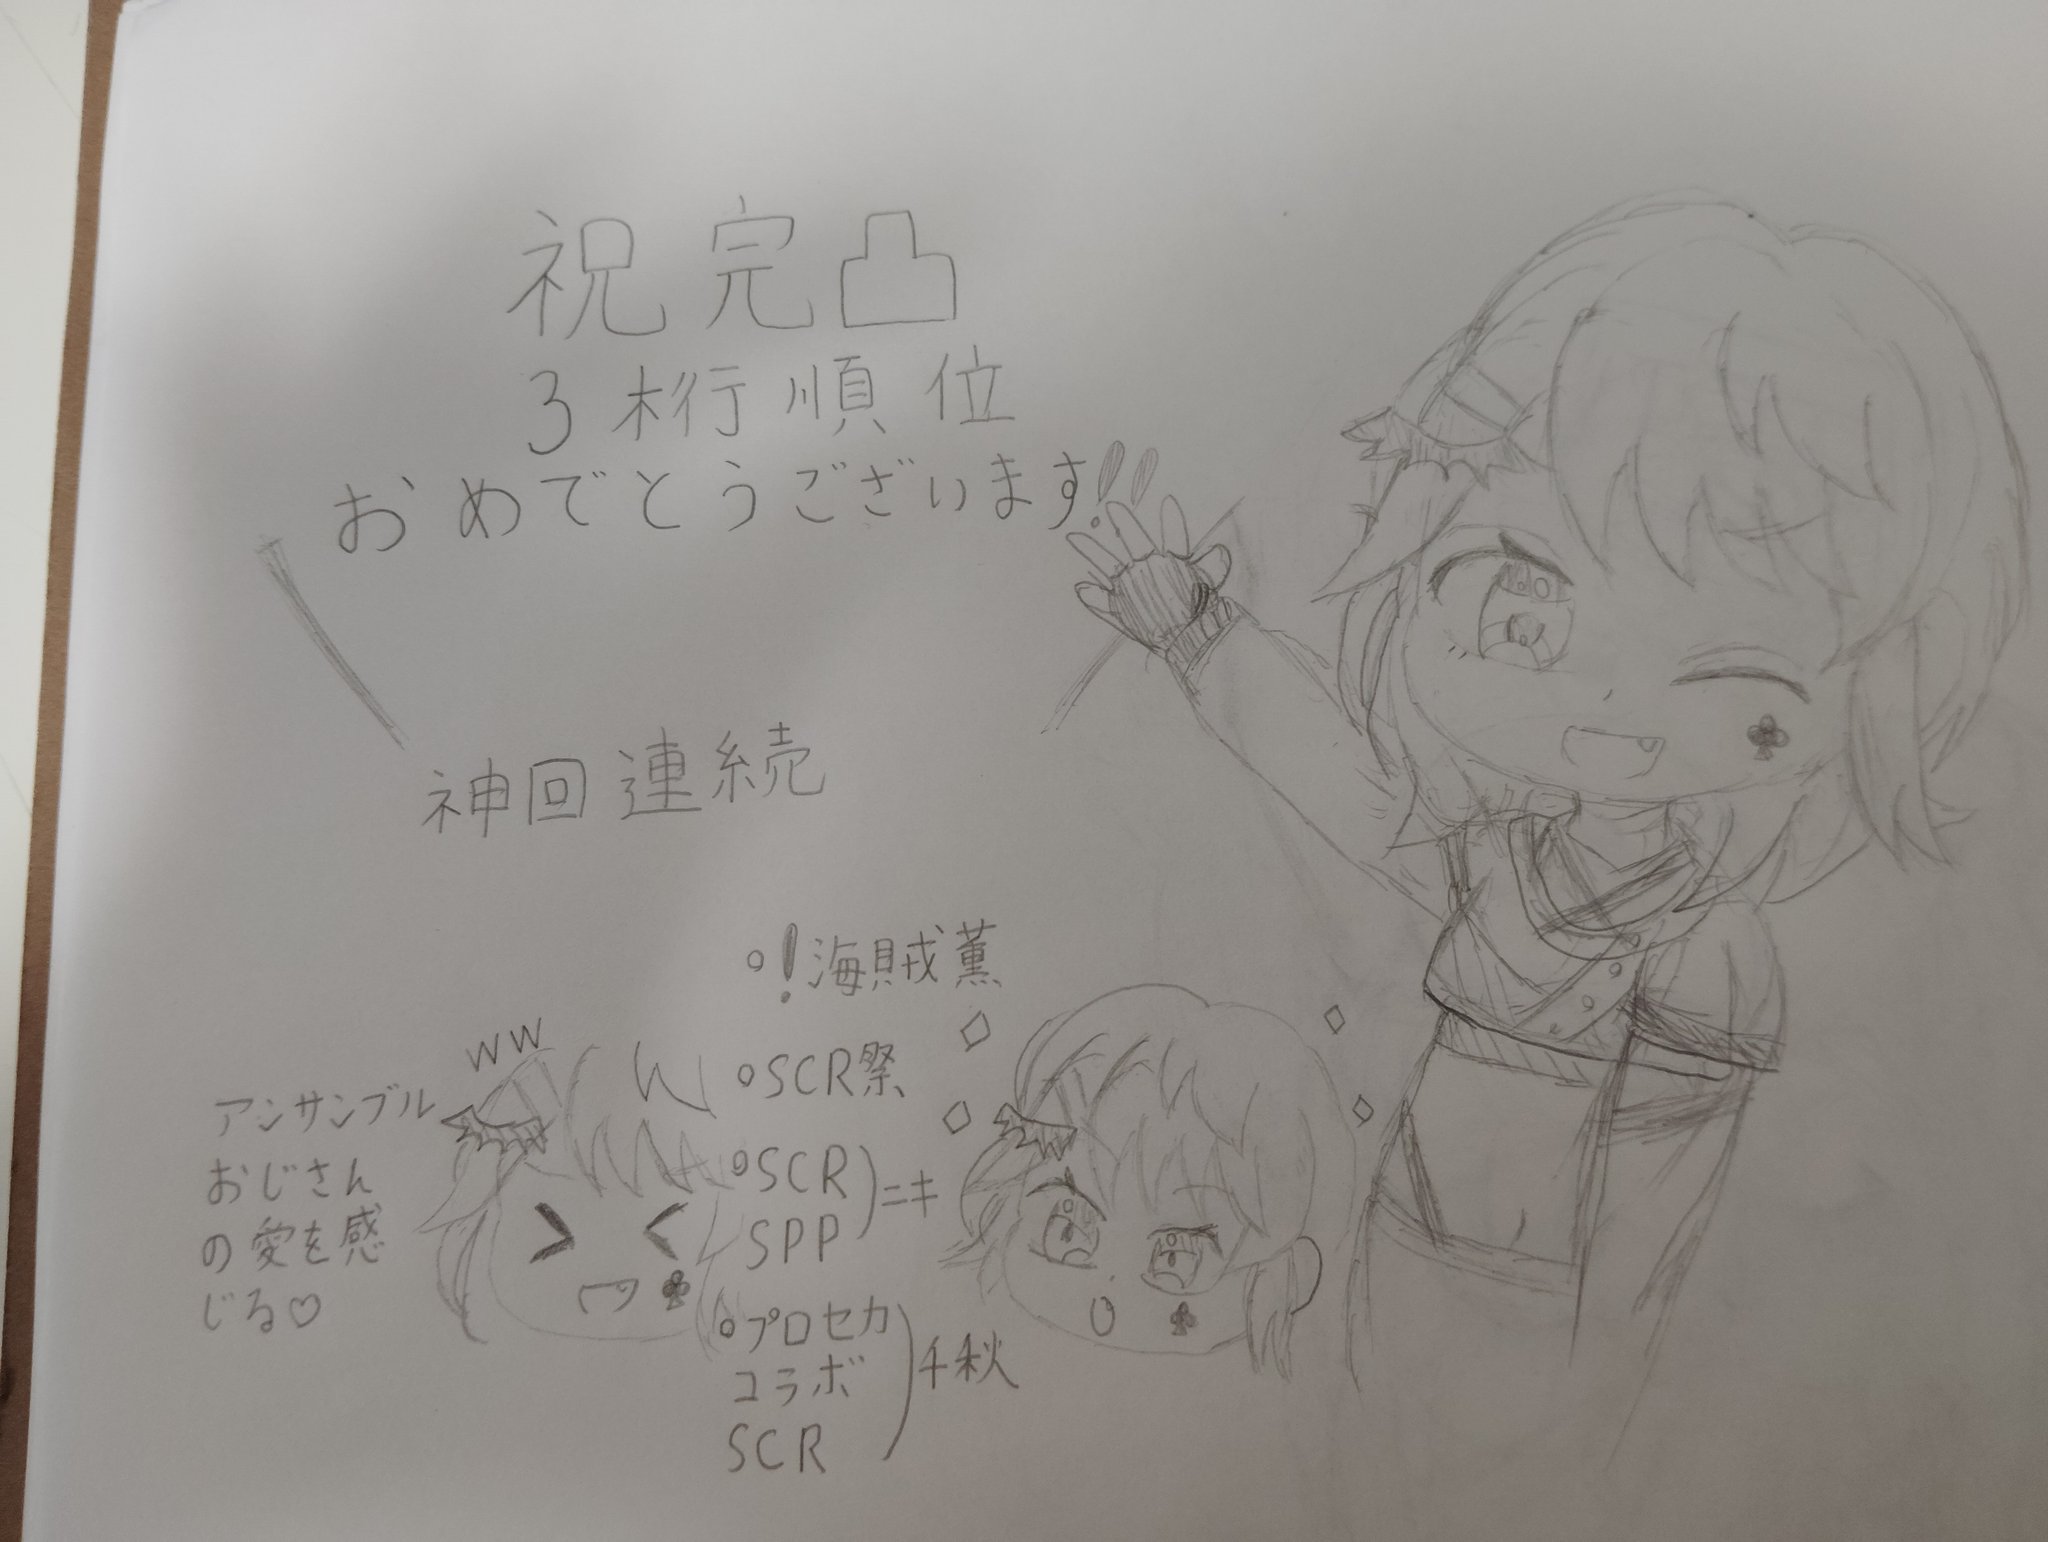 祝完凸
3桁順位
おめでとうございます!!
神回連続
!海賊薫
SCR祭
SCR
SPP
ニキ
プロセカ
コラボ
SCR
千秋
ww
アンサンブル
おじさん
の愛を感
じる♡